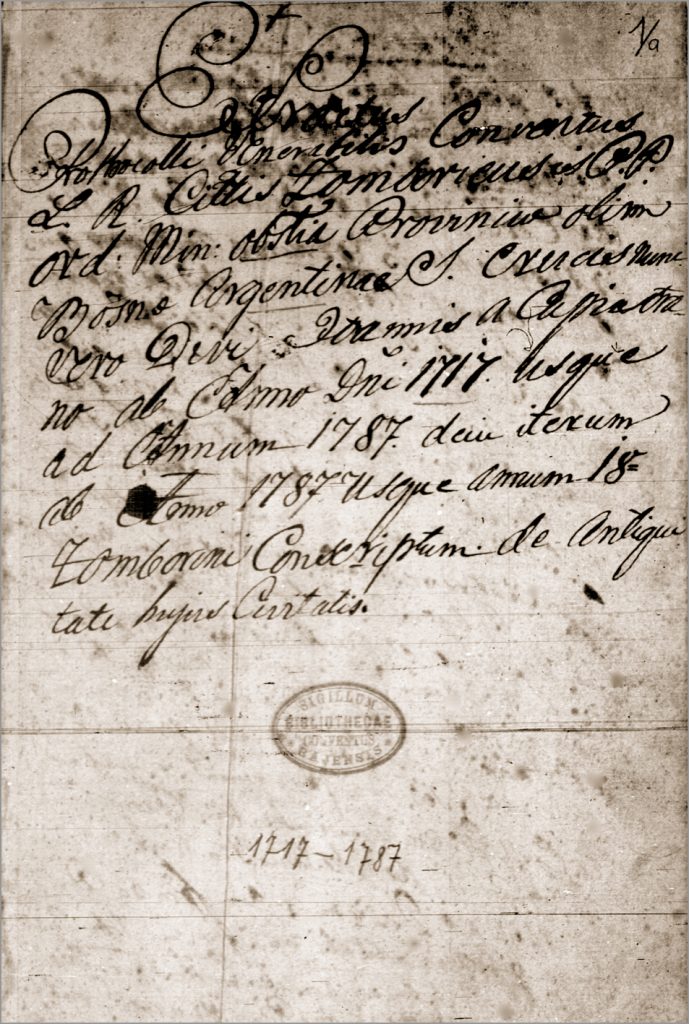 1/a
Extractus
Prothocolli Venerabilis Conventus
L. R. Cittis Zomboriensis P.P.
ord. Min: obstia Provinciae olim
Bosnae Argentinae S. Crucis nunc
vero Divi Joannis a Capistra-
no ab Anno Dni 1717. usque
ad Annum 1787. dein iterum
ab Anno 1787 usque annum 18=
Zomborini Conscriptum. de Antiqui
tate hujus Civitatis.
SIGILLUM
BIBLIOTHECAE
CONVENTUS
BAJENSIS
1717-1787